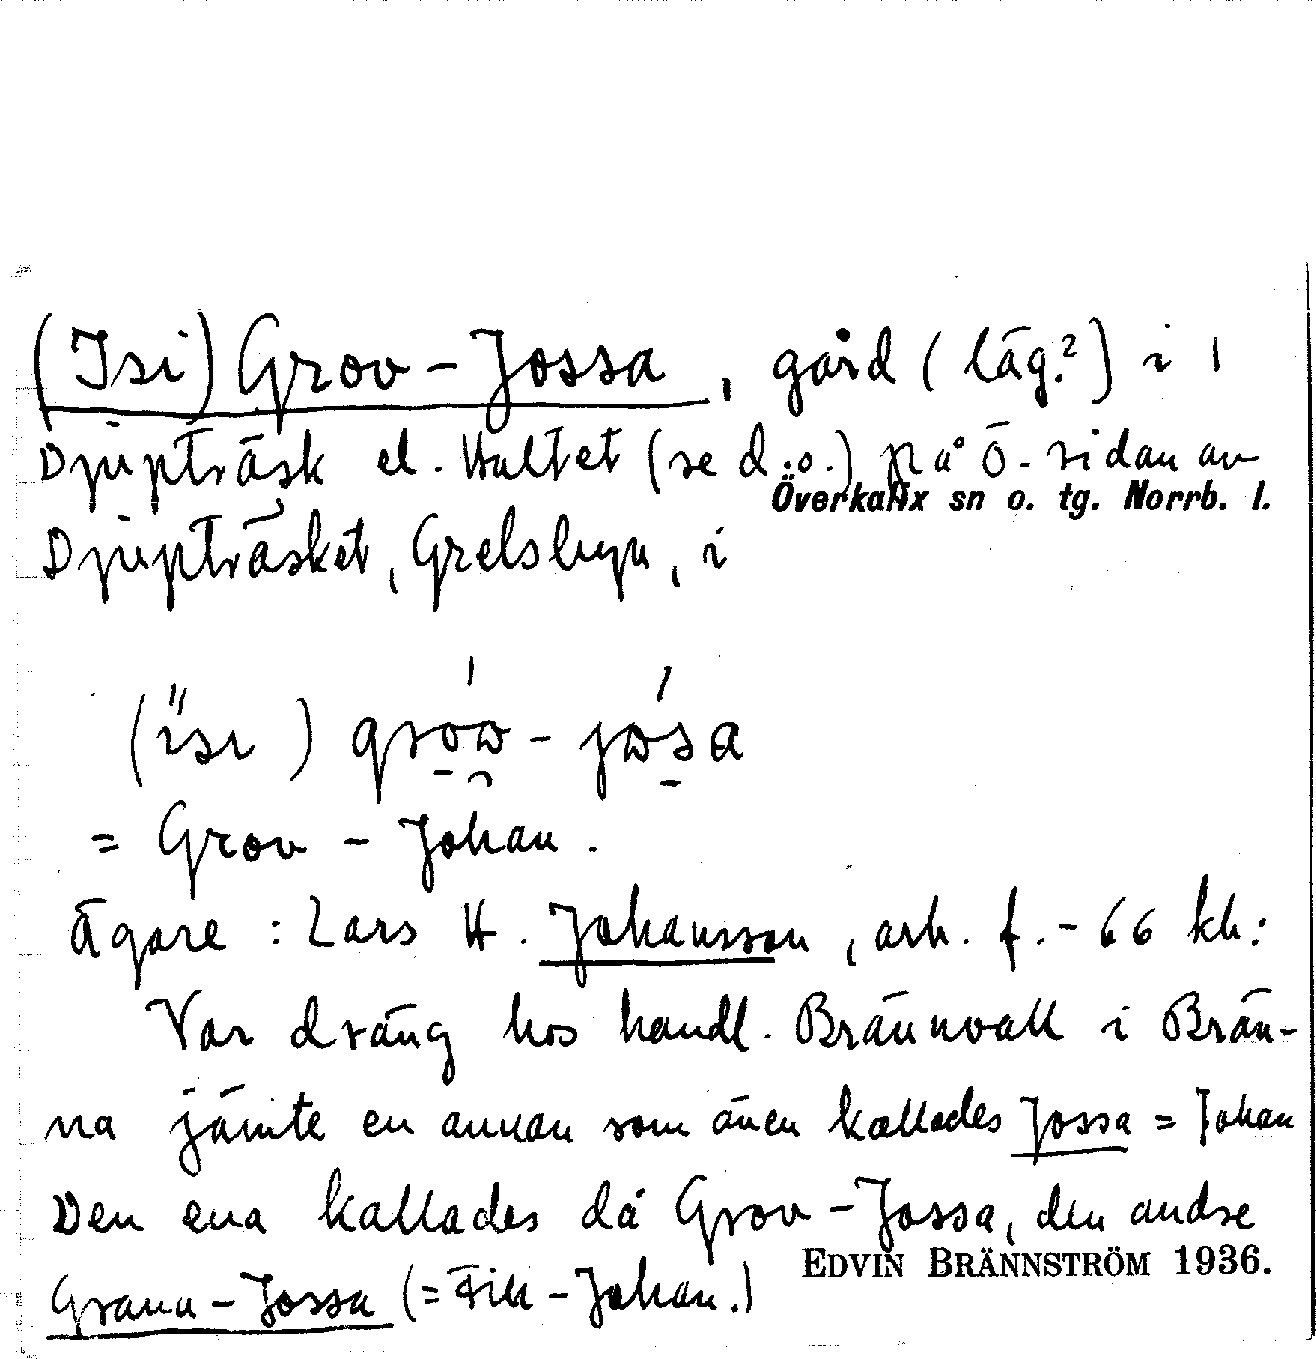 (Isi) Grov-Jossa, gård (läg.²) i
Djupträsk el. Hultet (se d.o.) på Ö-sidan av
Överkalix sn o. tg. Norrb. l.
Djupträsket, Grelsbyn, i
= Grov-Johan.
Ägare: Lars H. Johansson, arb. f. -66 kb:
Var dräng hos handl. Brännvall i Brän-
na jämte en annan som även kallades Jossa = Johan
Den ena kallades då Grov-Jossa, den andre
EDVIN BRÄNNSTRÖM 1936.
Grann-Jossa (= Johan.)